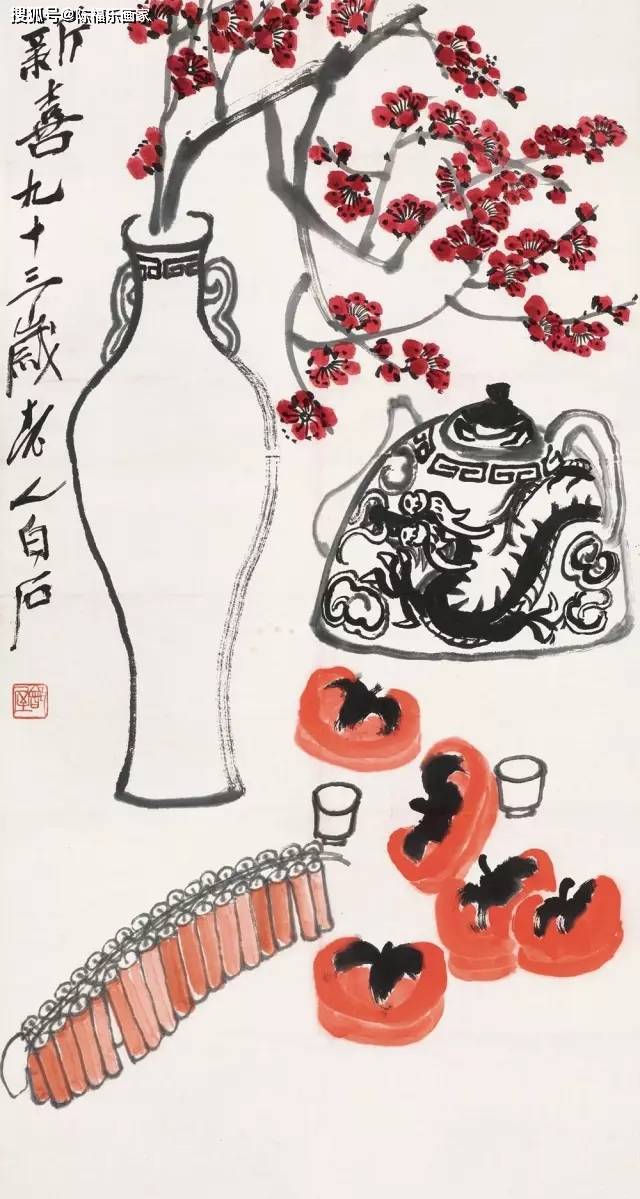 搜狐号@陈福乐画家
新喜九十三岁老人白石